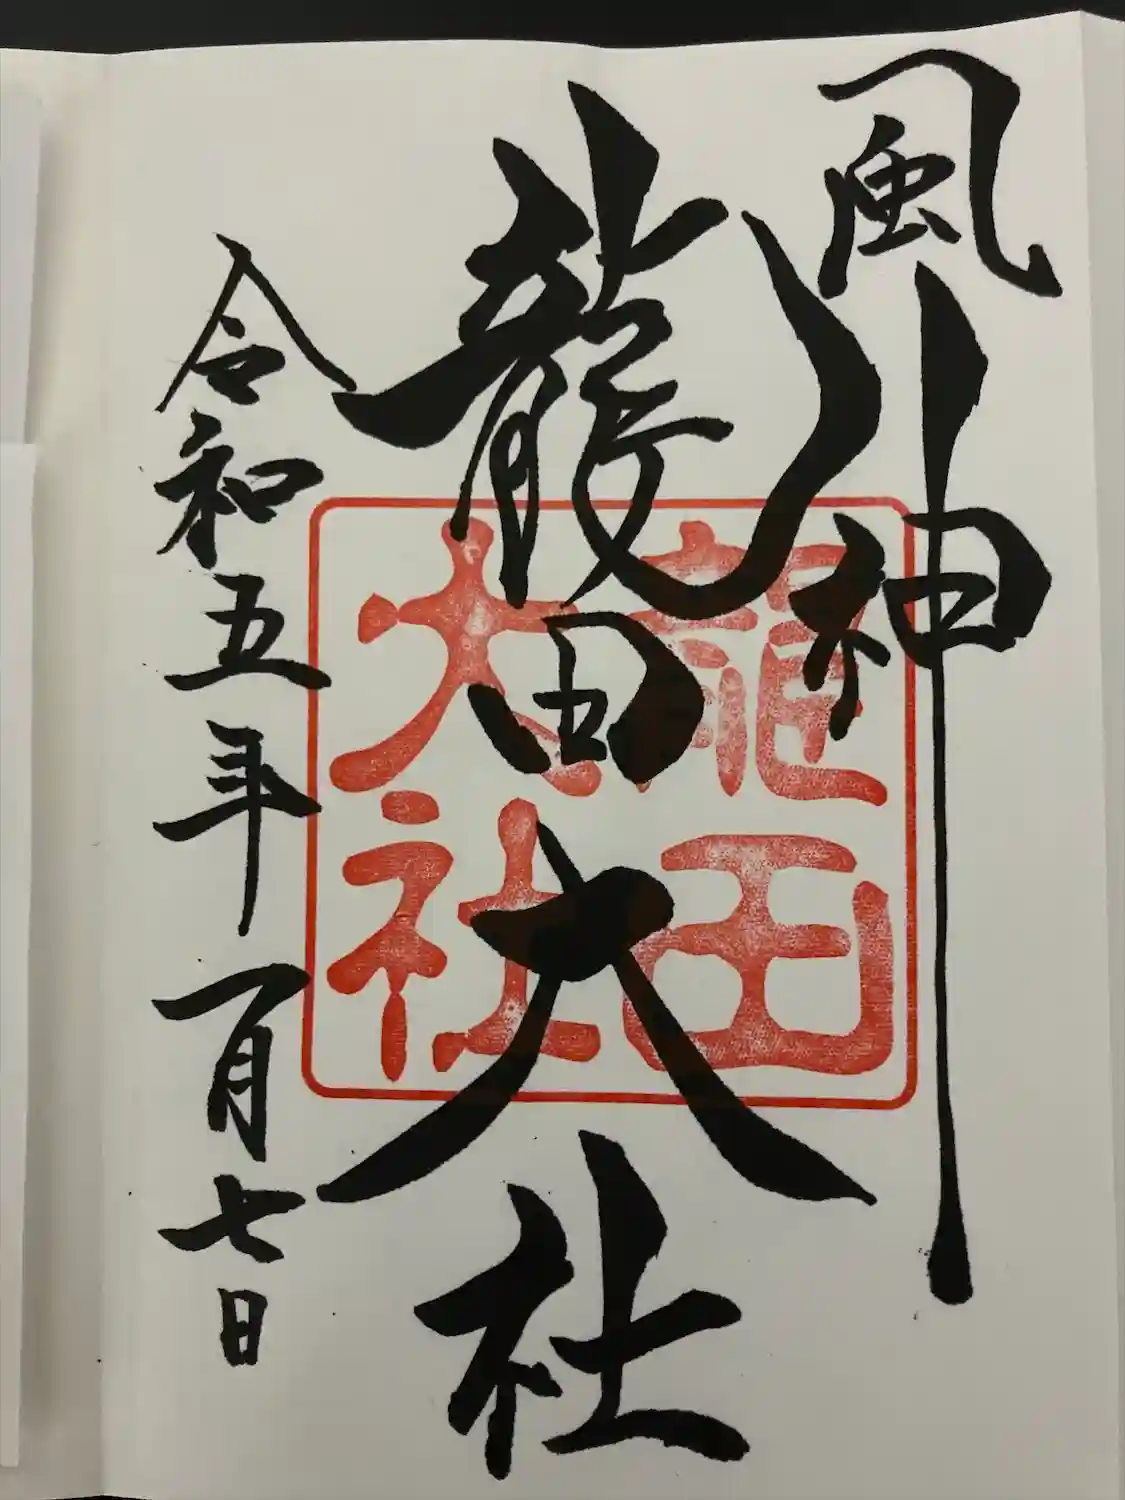 風神
龍田大社
令和五年一月七日
龍田
大社